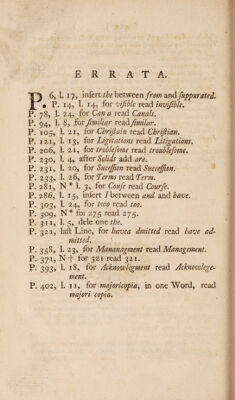 ERRATA.
P. 6, l. 17, insert the between from and suppurated.
P. 14, l. 14, for visible read invisible.
P. 78, l. 24, for Can a read Canals.
P. 94, l. 8, for similiar read similar.
P. 105, l. 21, for Christain read Christian.
P. 121, l. 13, for Legitations read Litigations.
P. 206, l. 21, for troblesome read troublesome.
P. 230, l. 4, after Solids add are.
P. 231, l. 20, for Sucession read Succession.
P. 233, l. 26, for Terms read Term.
P. 281, N * l. 3, for Couse read Course.
P. 286, l. 15, insert I between and and have.
P. 303, l. 24, for two read too.
P. 309, N * for 275 read 275.
P. 311, l. 5, dele one the.
P. 321, last Line, for havea dmitted read have ad-
mitted.
P. 358, l. 23, for Mananagment read Management.
P. 371, N † for 321 read 321.
P. 393, l. 18, for Acknowlegment read Acknowlege-
ment.
P. 402, l. 11, for majoricopia, in one Word, read
majori copia.